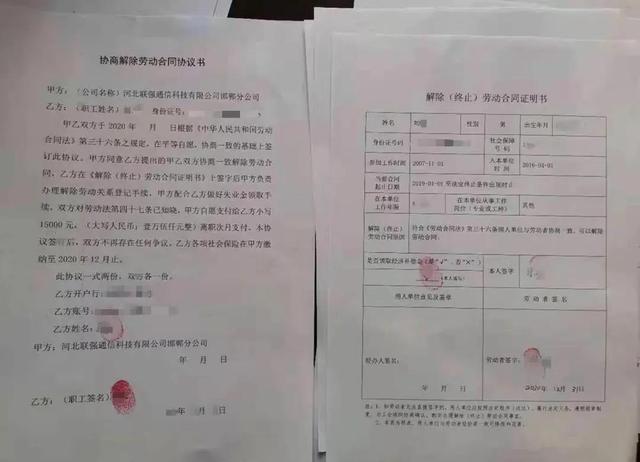 协商解除劳动合同协议书
甲方：（公司名称）河北联强通信科技有限公司邯郸分公司
乙方：（职工签名） 身份证号：
甲乙双方于 2020 年 月 日根据《中华人民共和国劳动
合同法》第三十六条之规定，在平等自愿，协商一致的基础上签
订此协议。甲方同意乙方提出的甲乙双方协商一致解除劳动合
同，乙方在《解除（终止）劳动合同证明书》上签字后甲方负责
办理解除劳动关系登记手续，甲方配合乙方做好失业金领取手
续，双方对劳动法第四十七条已知晓，甲方自愿支付给乙方小写
15000 元，（大写人民币：壹万伍仟元整）离职次月支付。本协
议签订后，双方不再存在任何争议。乙方各项社会保险在甲方缴
纳至 2020 年 12 月止。
此协议一式两份，双方各一份。
乙方开户行：
乙方账号：
乙方姓名：
甲方：河北联强通信科技有限公司邯郸分公司
年 月 日
乙方：（职工签名）
年 月 日
解除（终止）劳动合同证明书
姓名 刘 性别 男 出生年月
身份证号码 社会保障号码
参加工作时间 2007-11-01 入本单位时间 2016-04-01
当前合同起止日期 2019-01-01 至法定终止条件出现时止
在本单位工作年限 在本单位从事工作岗位（专业或工种） 其他
解除（终止）劳动合同原因 符合《劳动合同法》第三十六条用人单位与劳动者协商一致，可以解除劳动合同。
是否领取经济补偿金（是“√”，否“×”） 本人签字
用人单位意见及签章 劳动者签名
经办人签名： 劳动者签字：
年 月 日 2020年 12月 31日